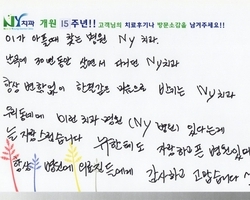 NY치과 개원 15주년!! 고객님의 치료후기나 방문소감을 남겨주세요!!
이가 아플때 찾는 병원 NY 치과.
난곡에 30년동안 살면서 다녔던 NY치과
항상 변함없이 한결같은 마음으로 반기는 NY치과
우리동네에 이런 치과·병원 (NY 병원) 있다는게
자랑스럽습니다
자랑하고픈 병원입니다
항상 병원에 의료진들에게 감사하고 고맙습니다~